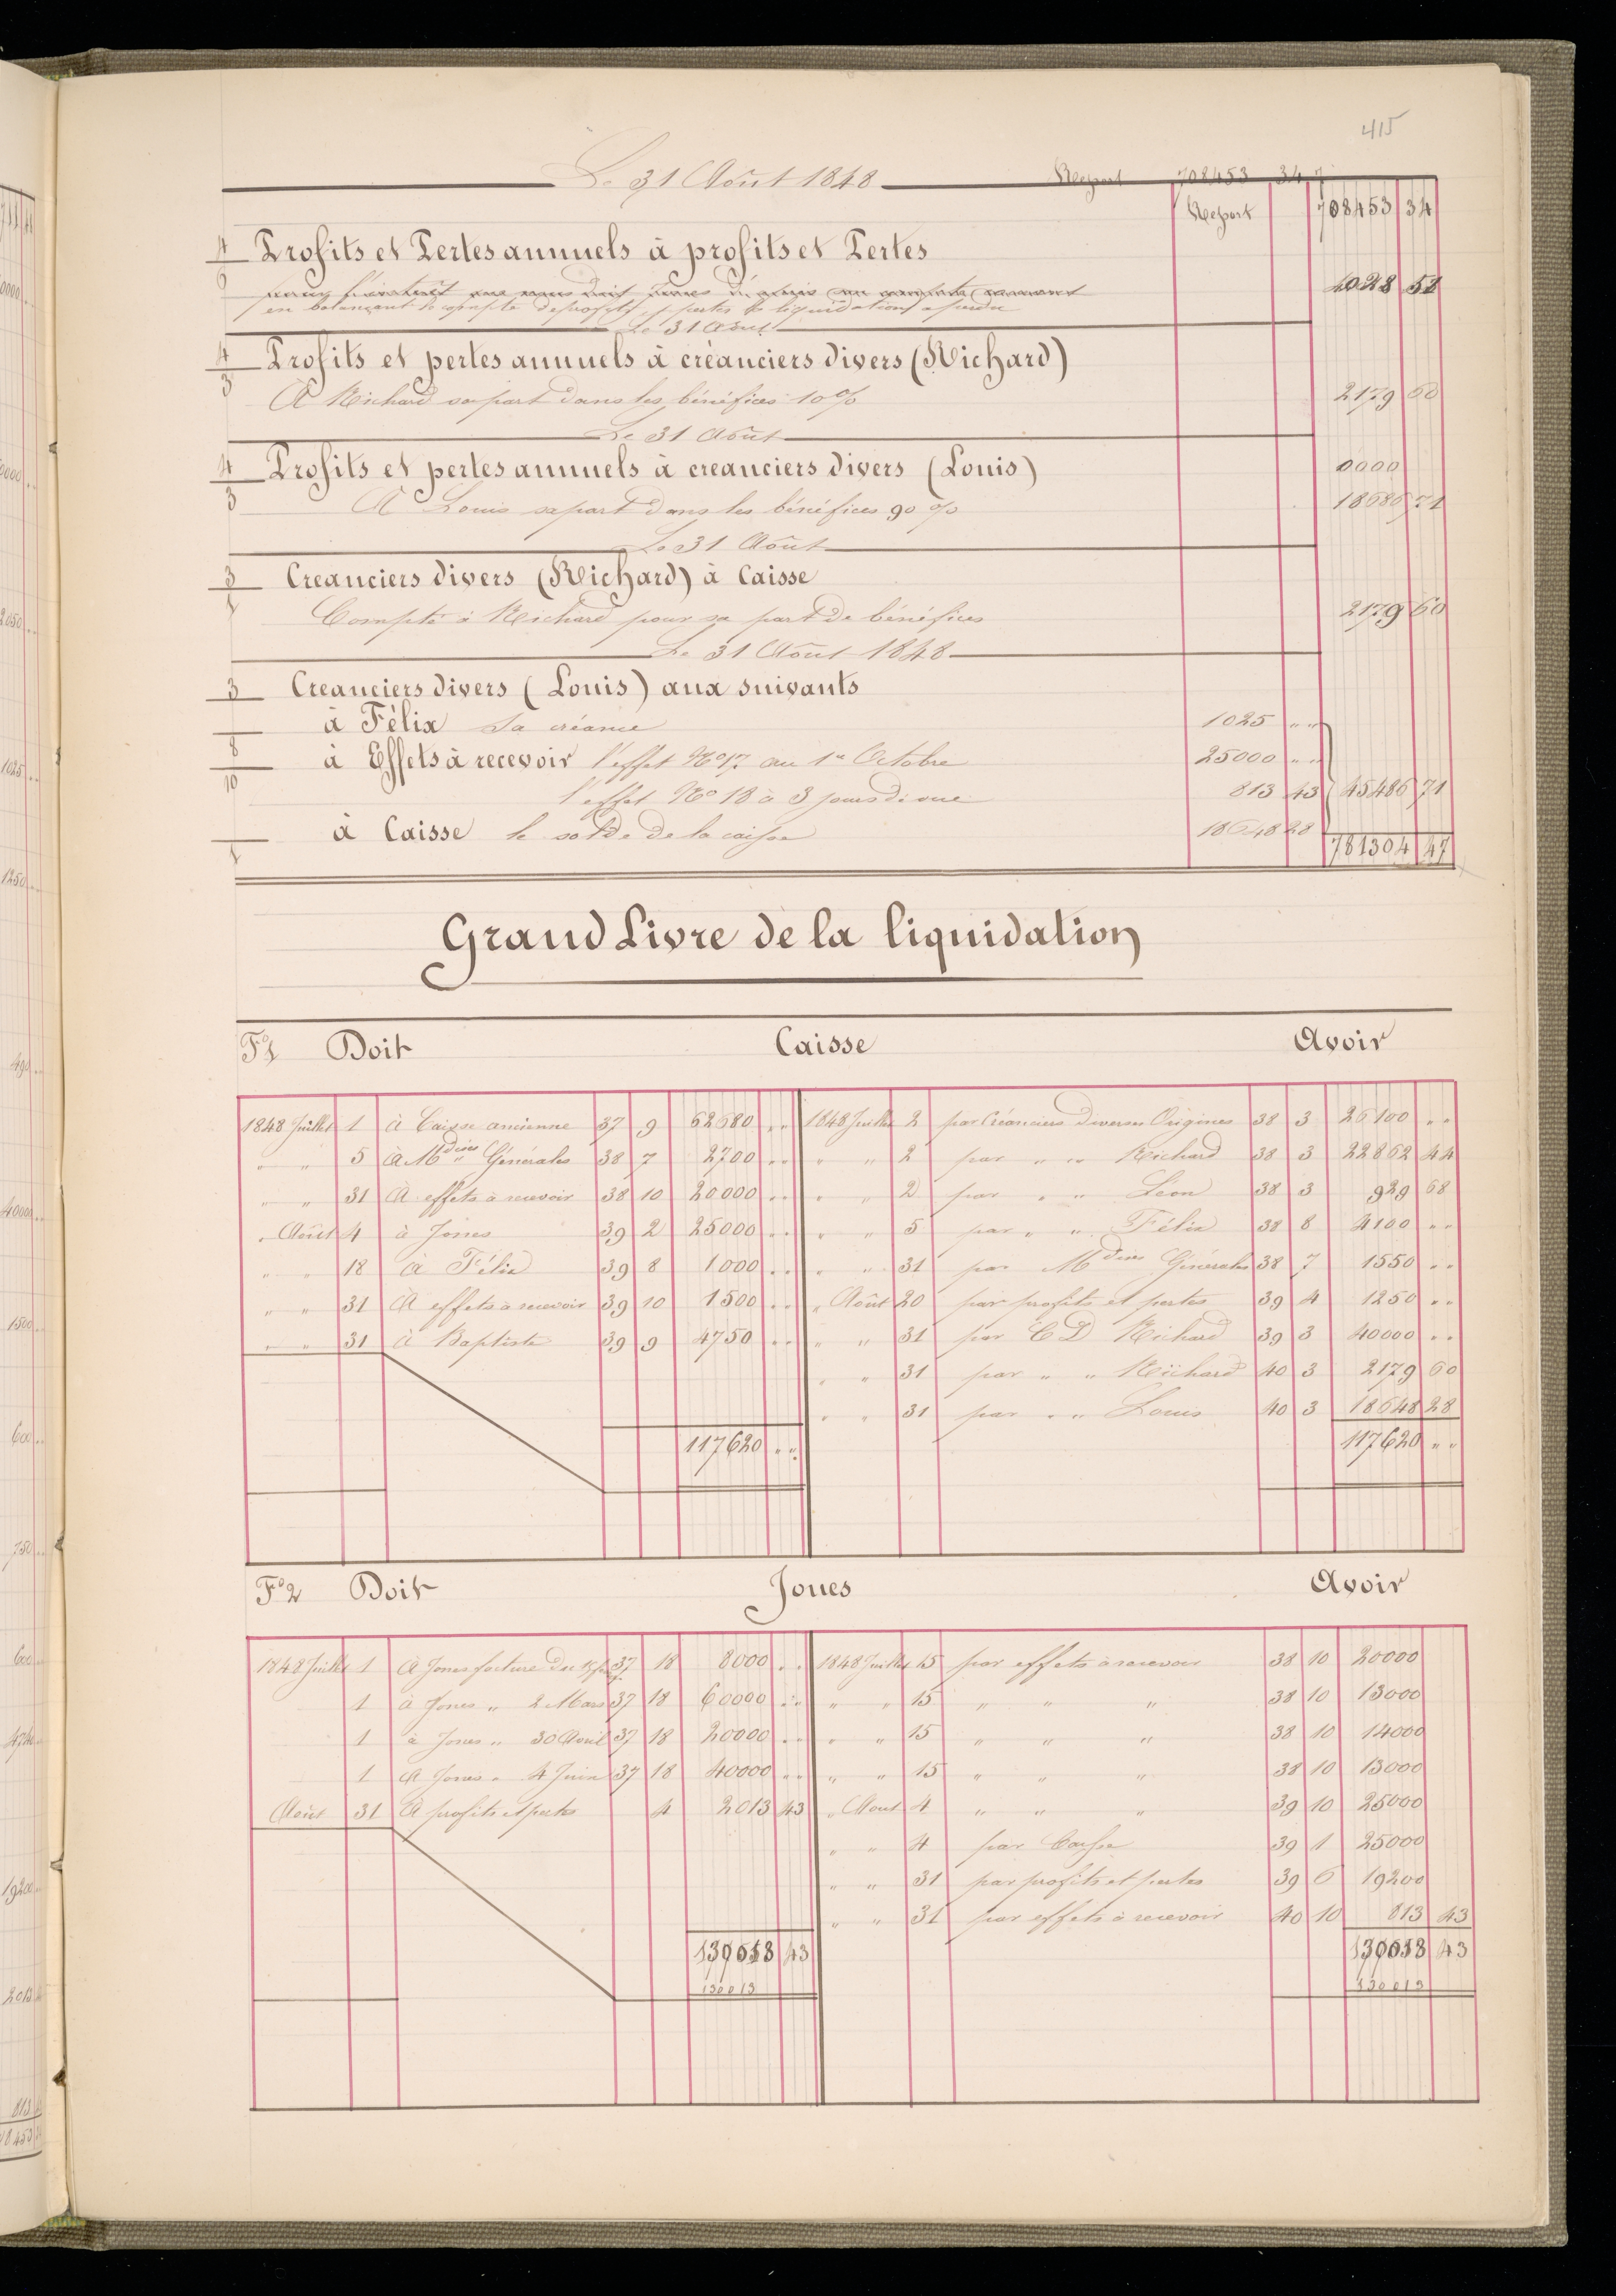 415
Le 31 Août 1848 Report 708453 34
Report 708453 34
4 Profits et Pertes annuels à profits et Pertes
6
en balançant le compte de profits et pertes la liquidation a perdu 4028 51
Le 31 Août
4 Profits et pertes annuels à créanciers divers (Richard)
3 A Richard sa part dans les bénéfices 10% 2179 60
Le 31 Août
4 Profits et pertes annuels à creanciers divers (Louis) 0000
3 A Louis sa part dans les bénéfices 90% 18686 71
Le 31 Août
3 Creanciers divers (Richard) à Caisse
1 Compté à Richard pour sa part de bénéfices 2179 60
Le 31 Août 1848
3 Creanciers divers (Louis) aux suivants
à Félix Sa créance 1025 " "
8 à Effets à recevoir l'effet No 17 au 1er Octobre 25000 " "
10 l'effet No 18 à 3 jours de vue 813 43 45486 71
à Caisse le solde de la caisse 18648 28
1 781304 47
Grand Livre de la liquidation
Fo1 Doit Caisse Avoir
1848 Juillet 1 à Caisse ancienne 37 9 62680 " " 1848 Juillet 2 par Créanciers divers en Origines 38 3 26100 " "
" " 5 à Mdises Générales 38 7 2700 " " " " 2 par " " Richard 38 3 22862 44
" " 31 à effets à recevoir 38 10 20000 " " " " 2 par " " Léon 38 3 929 68
" Août 4 à Jones 39 2 25000 " " " " 5 par " " Félix 38 8 4100 " "
" " 18 à Félix 39 8 1000 " " " " 31 par Mdises Générales 38 7 1550 " "
" " 31 à effets à recevoir 39 10 1500 " " " Août 20 par profits et pertes 39 4 1250 " "
" " 31 à Baptiste 39 9 4750 " " " " 31 par C D Richard 39 3 40000 " "
" " 31 par " " Richard 40 3 2179 60
" " 31 par " " Louis 40 3 18648 28
117620 " " 117620 " "
Fo2 Doit Jones Avoir
1848 Juillet 1 à Jones facture du 37 18 8000 " " 1848 Juillet 15 par effets à recevoir 38 10 20000
1 à Jones " 2 Mars 37 18 60000 " " " " 15 " " " 38 10 13000
1 à Jones " 30 Avril 37 18 20000 " " " " 15 " " " 38 10 14000
1 à Jones " 4 Juin 37 18 40000 " " " " 15 " " " 38 10 13000
Août 31 à profits et pertes 4 2013 43 " Aout 4 " " " 39 10 25000
" " 4 par Caisse 39 1 25000
" " 31 par profits et pertes 39 6 19200
" " 31 par effets à recevoir 40 10 813 43
130013 43 130013 43
130013 130013